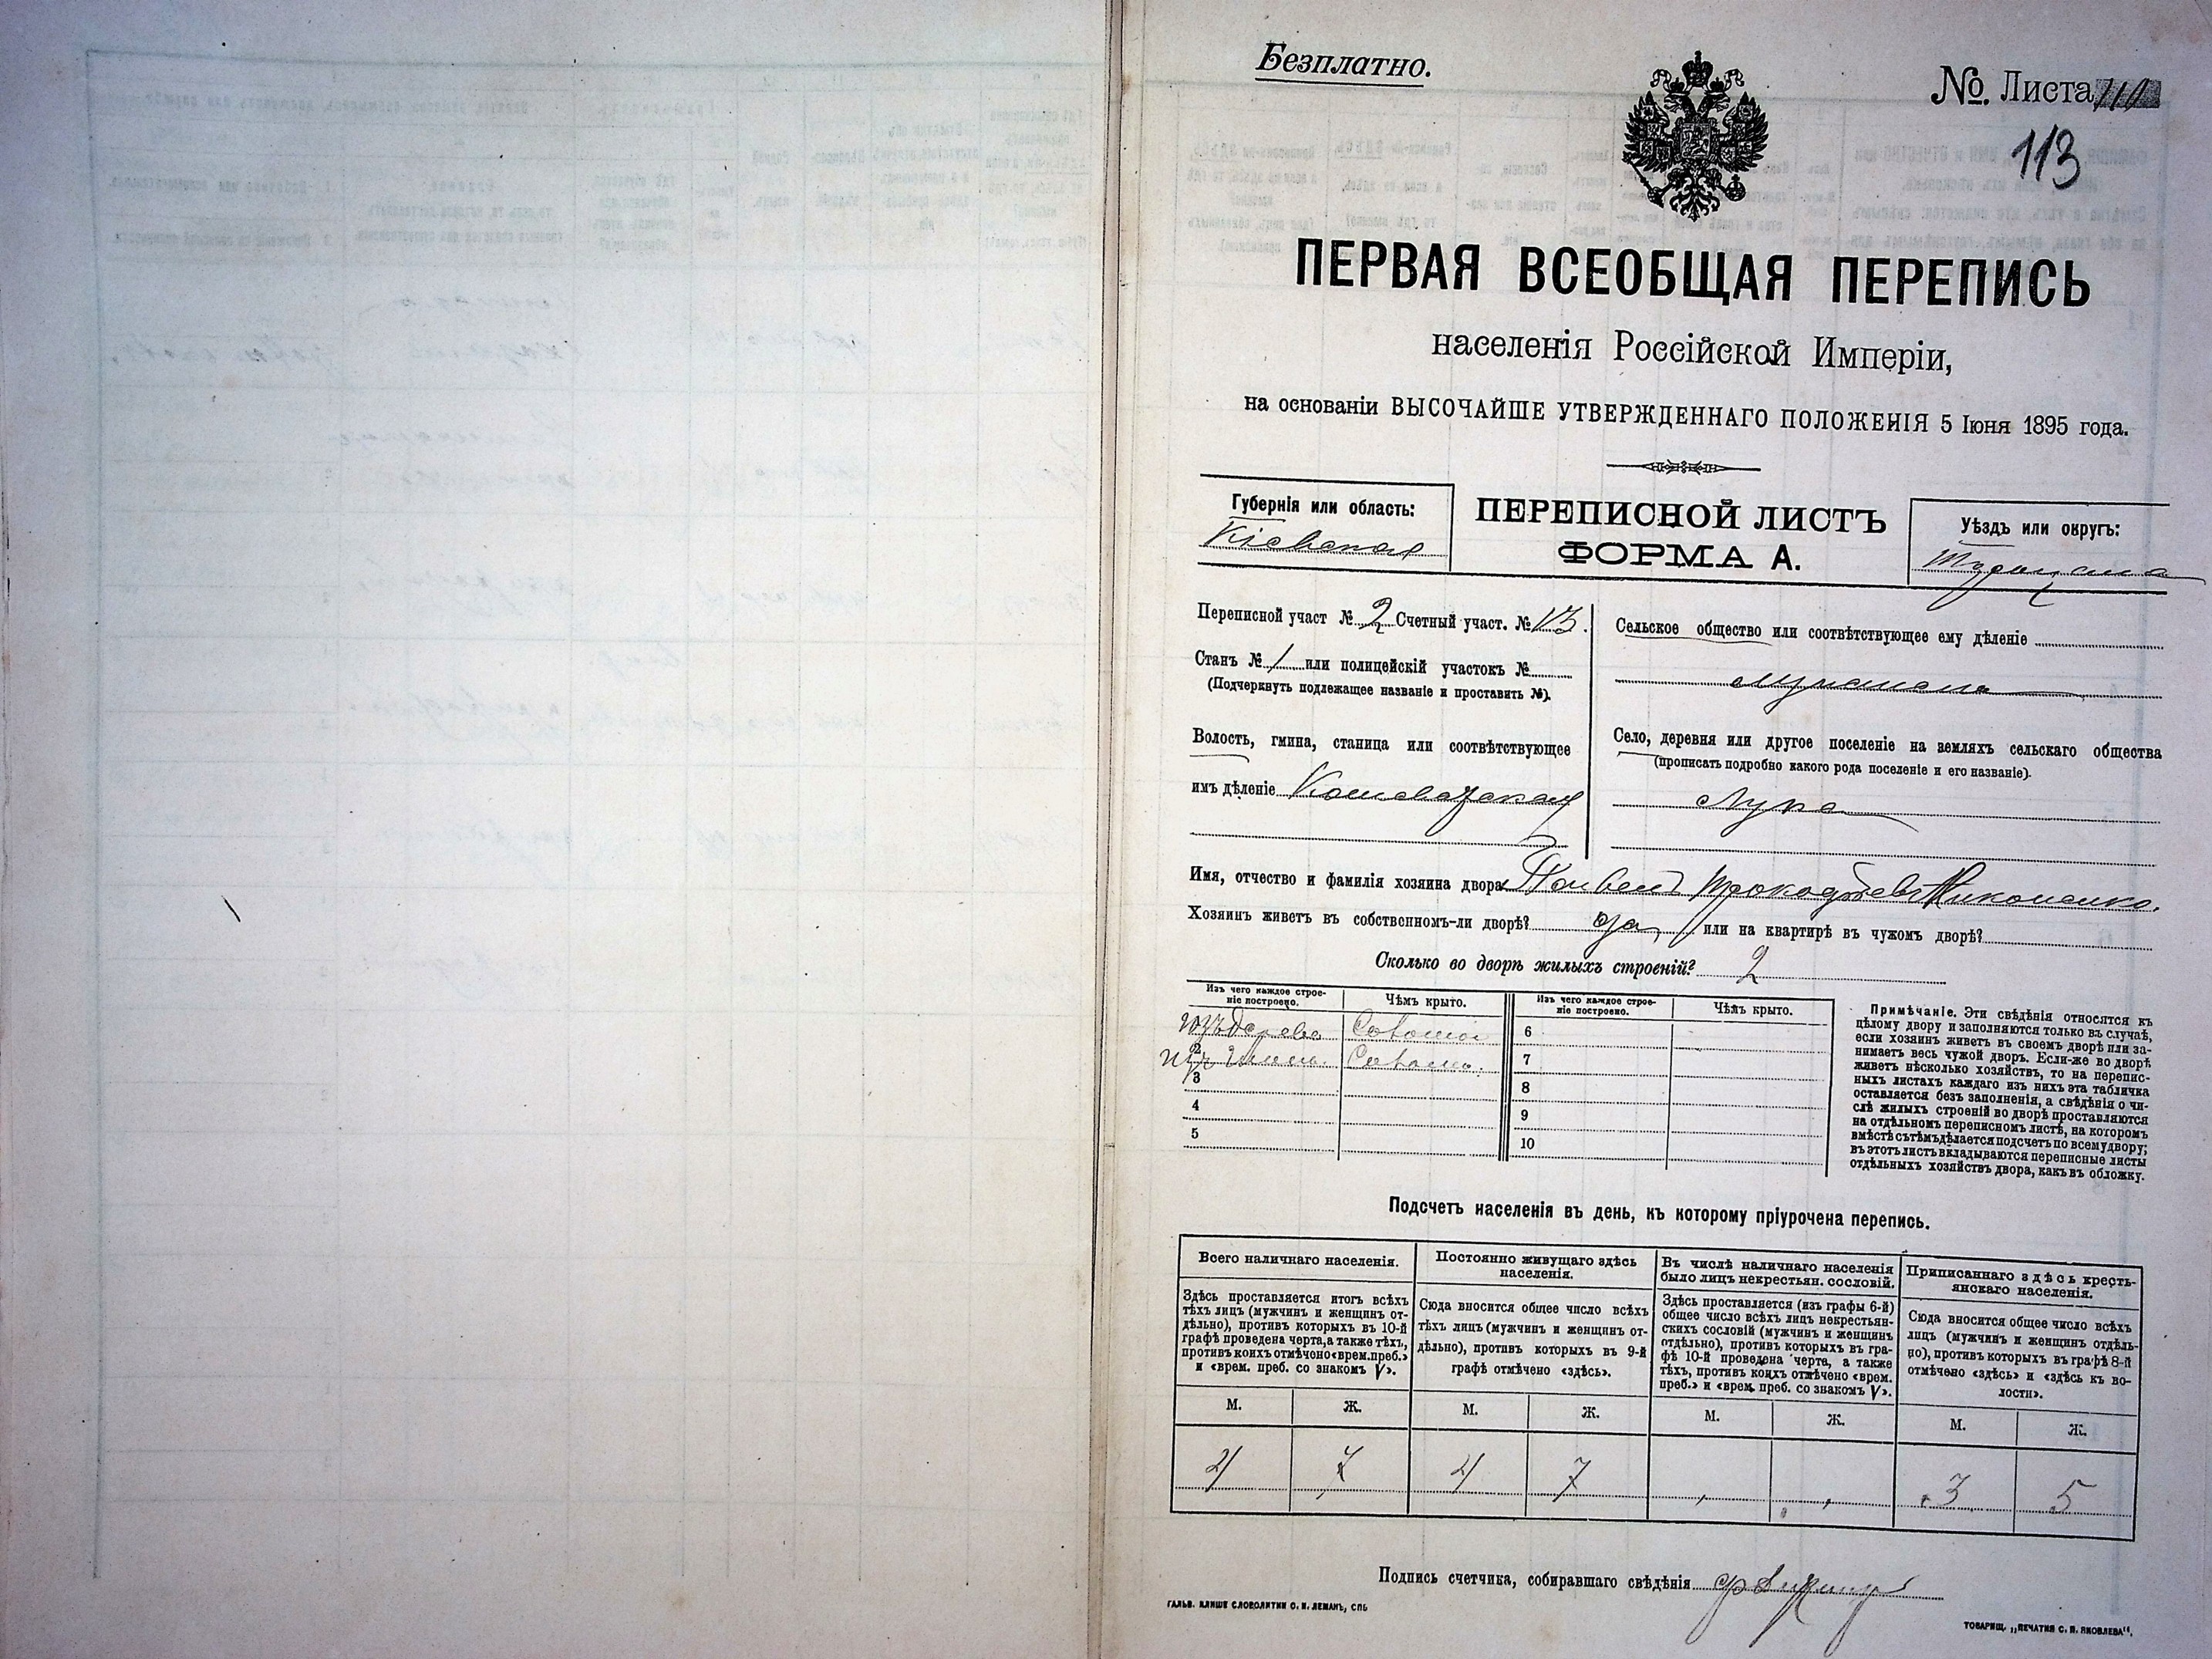 Безплатно.
№. Листа 110
113
ПЕРВАЯ ВСЕОБЩАЯ ПЕРЕПИСЬ
населенія Россійской Имперіи,
на основаніи ВЫСОЧАЙШЕ УТВЕРЖДЕННАГО ПОЛОЖЕНІЯ 5 Іюня 1895 года.
Губернія или область:
Кіевская
ПЕРЕПИСНОЙ ЛИСТЪ
ФОРМА А.
Уѣздъ или округъ:
Переписной участ № 2 Счетный участ. № 13.
Станъ № 1 или полицейскій участокъ №
(Подчеркнуть подлежащее названіе и проставить №).
Волость, гмина, станица или соотвѣтствующее
имъ дѣленіе Кошеватская
Сельское общество или соотвѣтствующее ему дѣленіе
Село, деревня или другое поселеніе на земляхъ сельскаго общества
(прописать подробно какого рода поселеніе и его названіе).
Лука
Имя, отчество и фамилія хозяина двора Прокофьевъ Никоненко.
Хозяинъ живетъ въ собственномъ-ли дворѣ? да или на квартирѣ въ чужомъ дворѣ?
Сколько во дворѣ жилыхъ строеній? 2
Изъ чего каждое строе-
ніе построено.
Чѣмъ крыто.
Изъ чего каждое строе-
ніе построено.
Чѣмъ крыто.
изъ дерева Соломою 6
2 изъ глины. Солом. 7
3 8
4 9
5 10
Примѣчаніе. Эти свѣдѣнія относятся къ
цѣлому двору и заполняются только въ случаѣ,
если хозяинъ живетъ въ своемъ дворѣ или за-
нимаетъ весь чужой дворъ. Если-же во дворѣ
живетъ нѣсколько хозяйствъ, то на перепис-
ныхъ листахъ каждаго изъ нихъ эта табличка
оставляется безъ заполненія, а свѣдѣнія о чи-
слѣ жилыхъ строеній во дворѣ проставляются
на отдѣльномъ переписномъ листѣ, на которомъ
вмѣстѣ съ тѣмъ дѣлается подсчетъ по всему двору;
въ этотъ листъ вкладываются переписные листы
отдѣльныхъ хозяйствъ двора, какъ въ обложку.
Подсчетъ населенія въ день, къ которому пріурочена перепись.
Всего наличнаго населенія.
Здѣсь проставляется итогъ всѣхъ
тѣхъ лицъ (мужчинъ и женщинъ от-
дѣльно), противъ которыхъ въ 10-й
графѣ проведена черта, а также тѣхъ,
противъ коихъ отмѣчено «врем. преб.»
и «врем. преб. со знакомъ V».
Постоянно живущаго здѣсь
населенія.
Сюда вносится общее число всѣхъ
тѣхъ лицъ (мужчинъ и женщинъ от-
дѣльно), противъ которыхъ въ 9-й
графѣ отмѣчено «здѣсь».
Въ числѣ наличнаго населенія
было лицъ некрестьян. сословій.
Здѣсь проставляется (изъ графы 6-й)
общее число всѣхъ лицъ некрестьян-
скихъ сословій (мужчинъ и женщинъ
отдѣльно), противъ которыхъ въ гра-
фѣ 10-й проведена черта, а также
тѣхъ, противъ коихъ отмѣчено «врем.
преб.» и «врем. преб. со знакомъ V».
Приписаннаго здѣсь кресть-
янскаго населенія.
Сюда вносится общее число всѣхъ
лицъ (мужчинъ и женщинъ отдѣль-
но), противъ которыхъ въ графѣ 8-й
отмѣчено «здѣсь» и «здѣсь къ во-
лости».
М. Ж. М. Ж. М. Ж. М. Ж.
4 7 4 7 3 5
Подпись счетчика, собиравшаго свѣдѣнія
ГАЛЬВ. КЛИШЕ СЛОВОЛИТНИ О. И. ЛЕМАНЪ, СПБ
ТОВАРИЩ. „ПЕЧАТНЯ С. П. ЯКОВЛЕВА“.